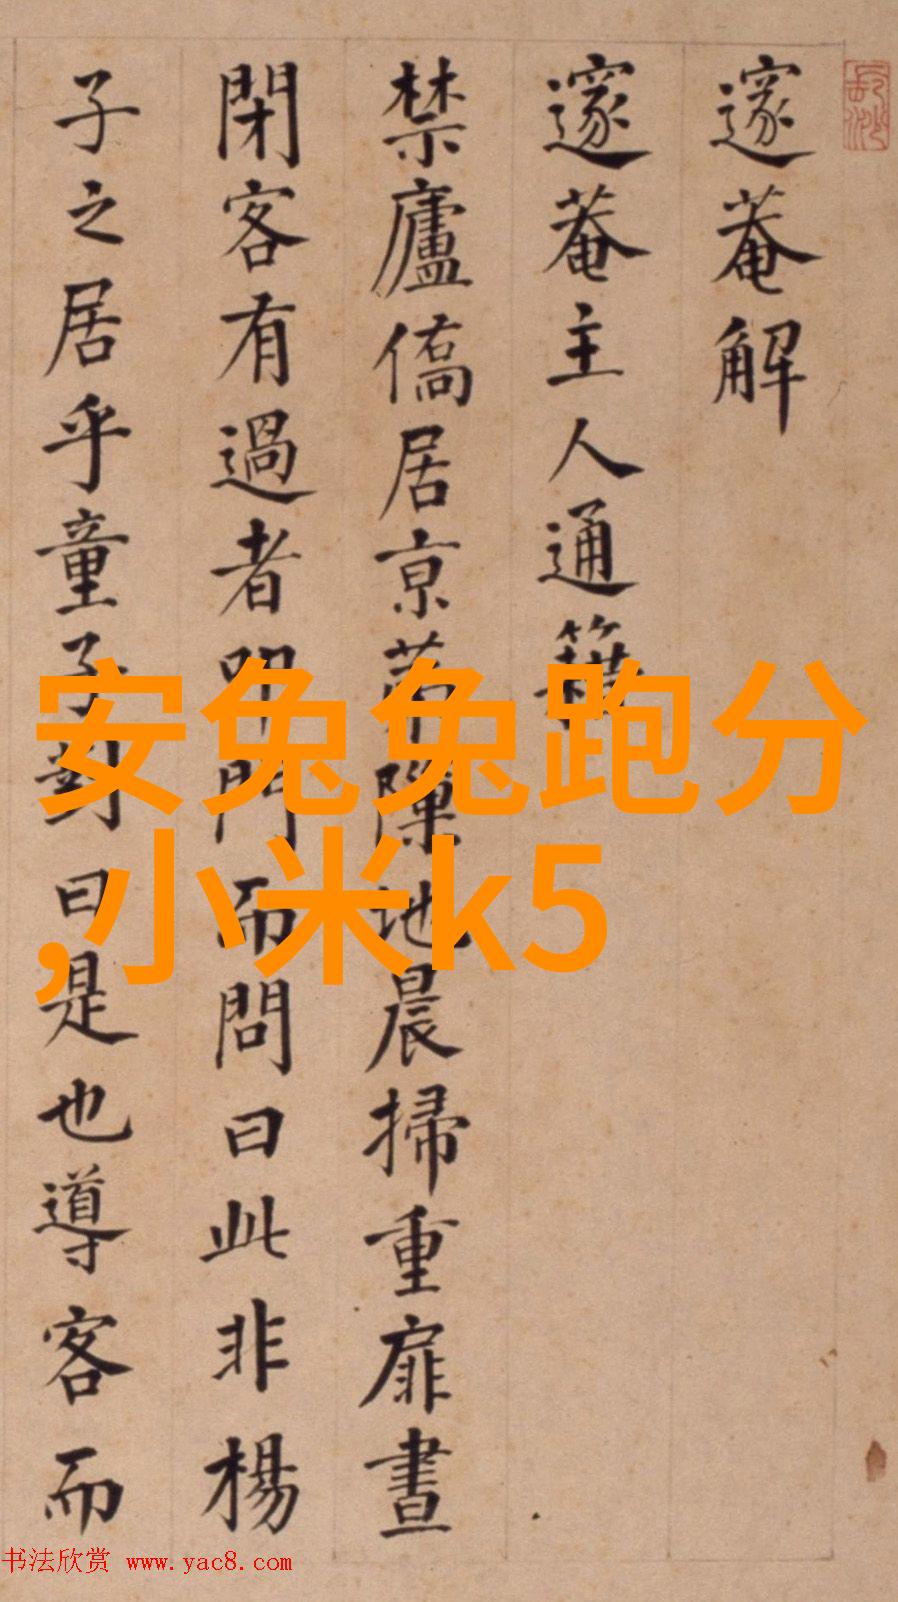 邃菴解
邃菴主人通籍
禁廬僑居京苐隙地晨掃重扉晝
閉客有過者叩門而問曰此非楊
子之居乎童子對曰是也導客而
安兔兔跑分
,小米k5
书法欣赏 www.yac8.com